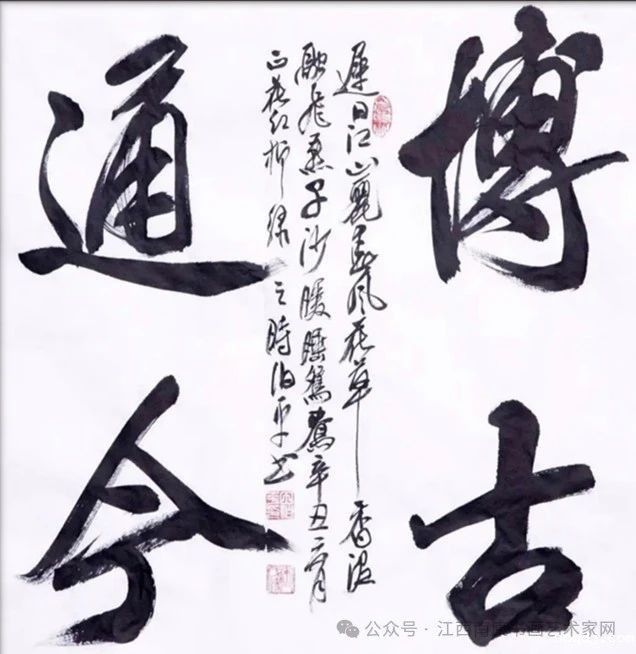 博古
遲日江山麗春风花草香泥
融飛燕子沙暖睡鴛鴦辛丑二月
正花红柳绿之時伯平书
通今
公众号 · 江西南康书画艺术家网